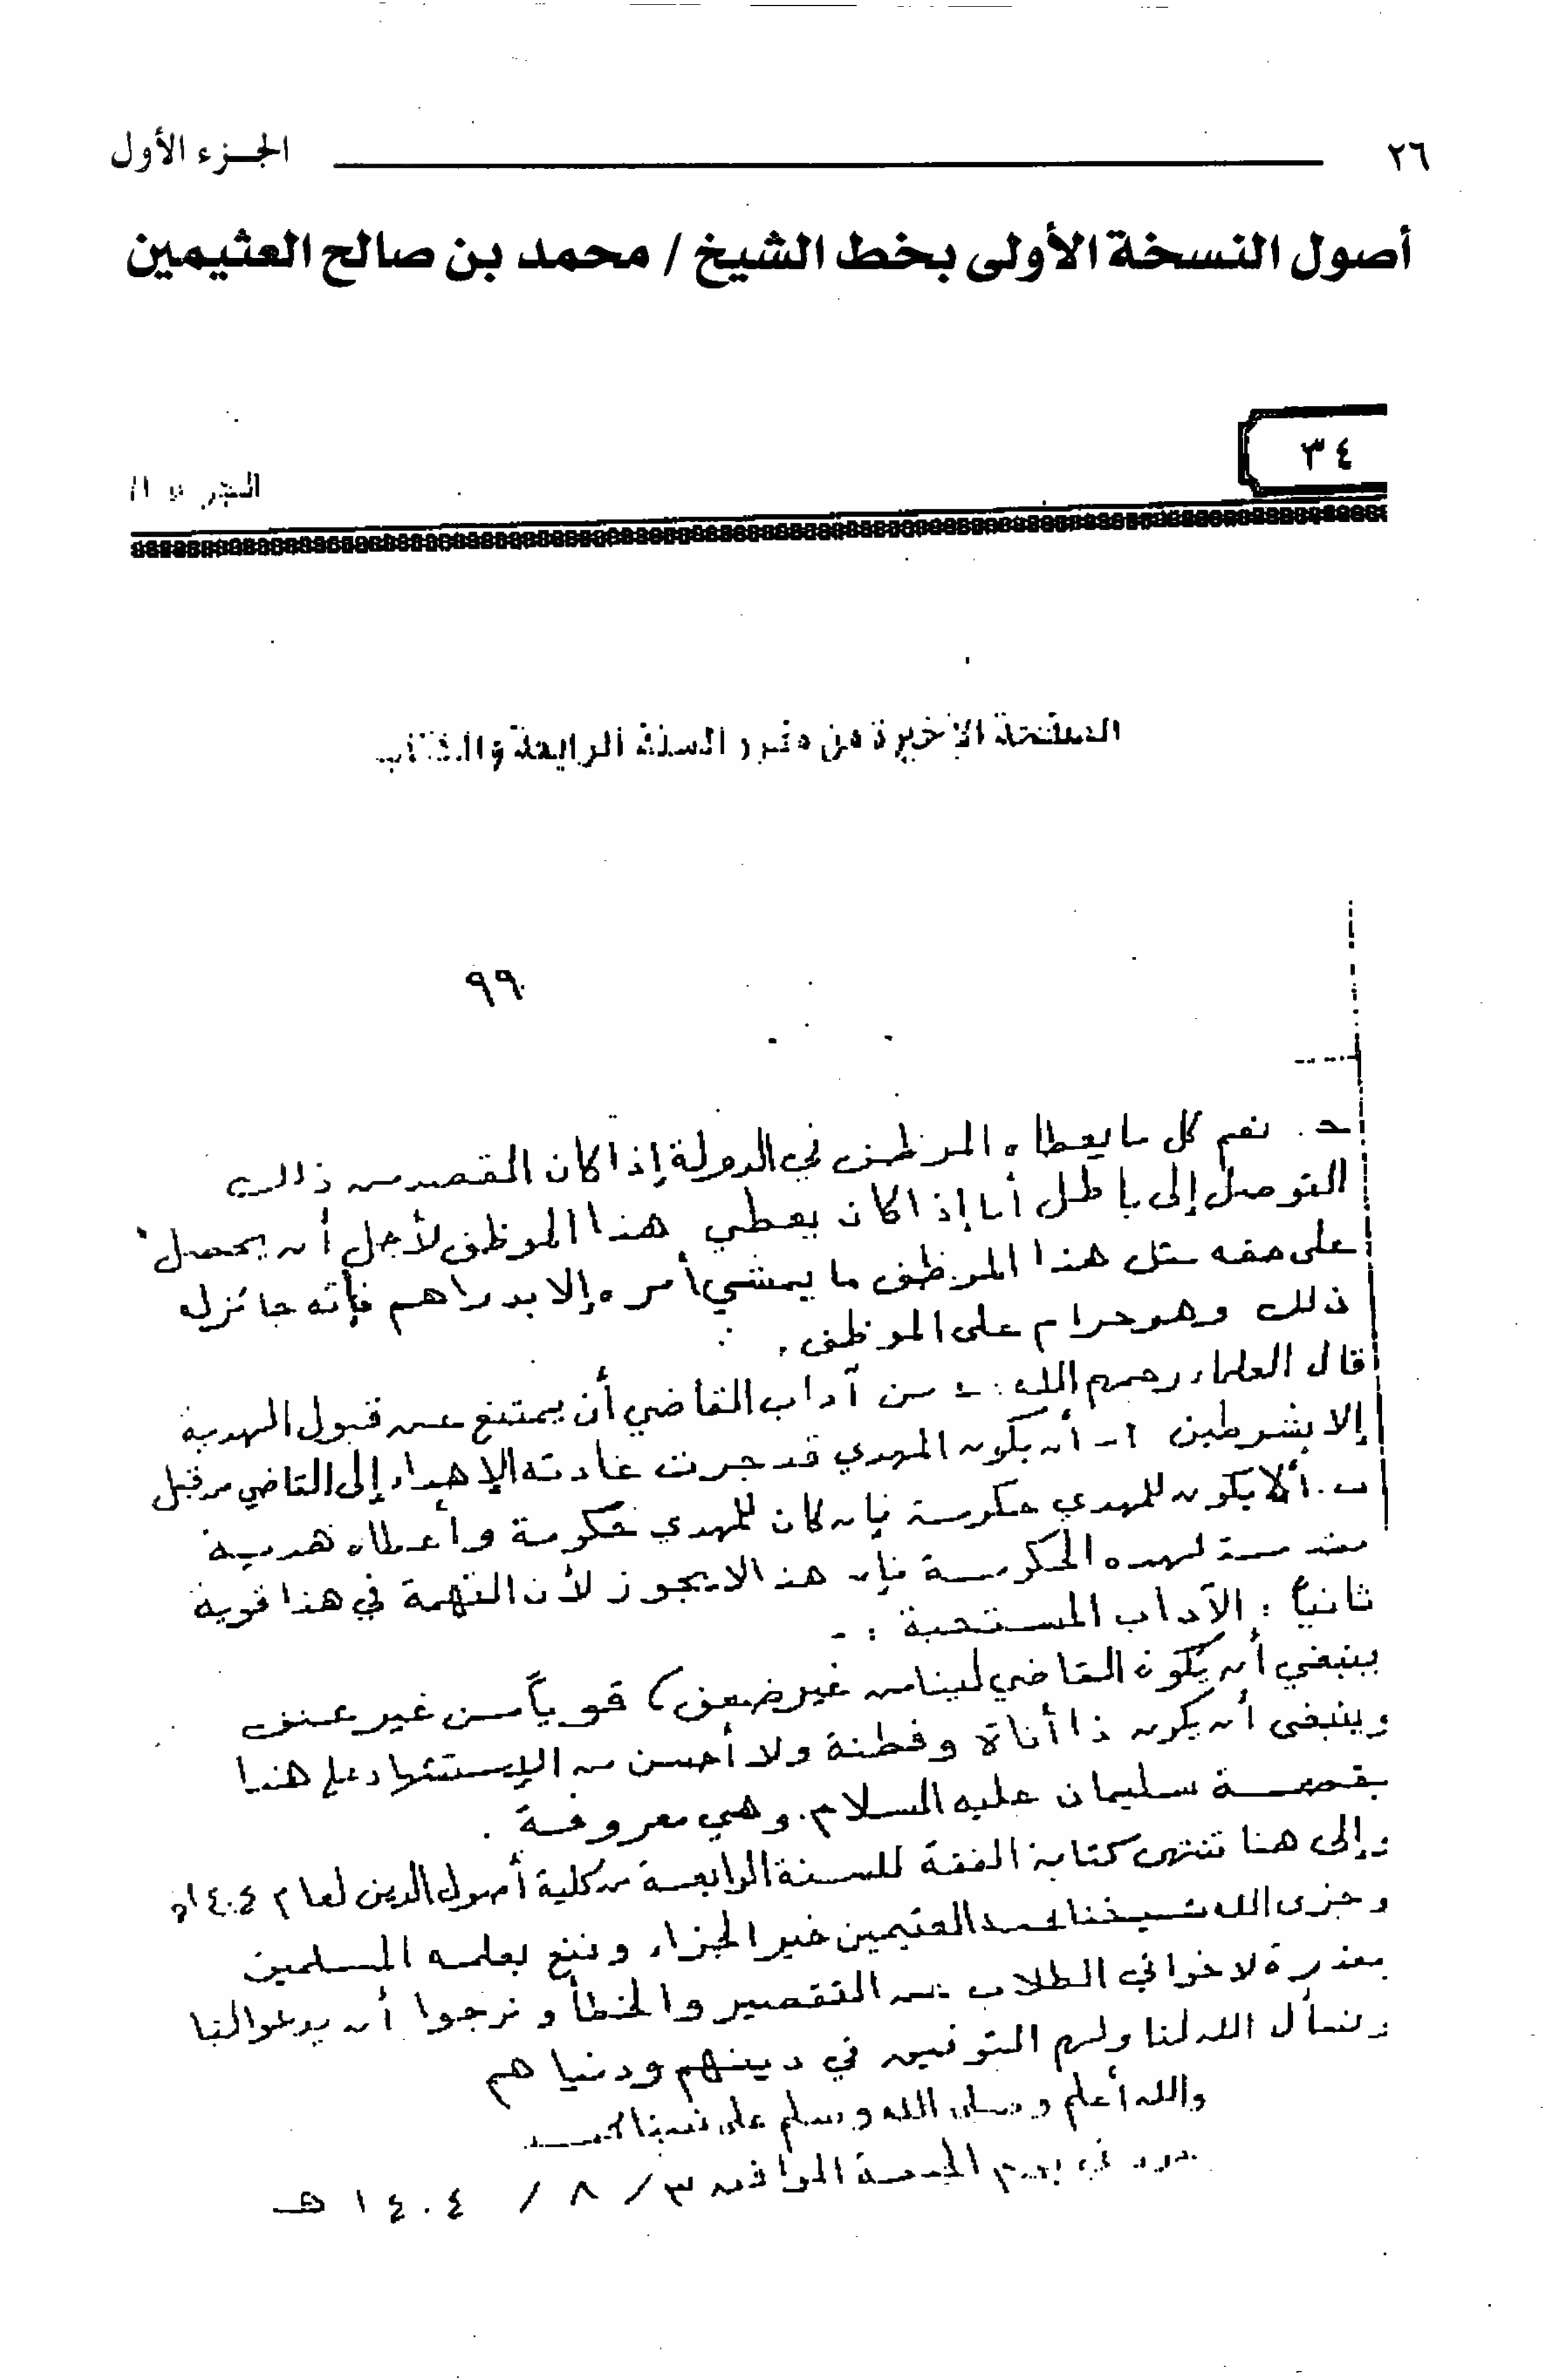 ٢٦ الجـزء الأول
أصول النسخة الأولى بخط الشيخ / محمد بن صالح العثيمين
٣٤
الصفحة الأخيرة من مقرر السنة الرابعة
٩٩
حـ. نعم كل ما يعطاه الموظف في الدولة إذا كان القصد من ذلك
التوصل إلى باطل أما إذا كان يعطي هذا الموظف لأجل أن يحصل
على حقه مثل هذا الموظف ما يمشي أمره إلا بدراهم فإنه جائز له
ذلك وهو حرام على الموظف .
قال العلماء رحمهم الله :ـ من آداب القاضي أن يمتنع عن قبول الهدية
إلا بشرطين أ- أن يكون المهدي قد جرت عادته الإهداء إلى القاضي من قبل
ب. ألا يكون للمهدي حكومة فإن كان للمهدي حكومة وأعطاه هدية
مقدمة لهذه الحكومة فإن هذا لا يجوز لأن التهمة في هذا قوية
ثانياً : الآداب المستحبة :-
ينبغي أن يكون القاضي لينا من غير ضعف ، قوياً من غير عنف
وينبغي أن يكون ذا أناة وفطنة ولا أحسن من الإستشهاد على هذا
بقصة سليمان عليه السلام . وهي معروفة .
وإلى هنا تنتهي كتابة الفقه للسنة الرابعة من كلية أصول الدين لعام ١٤٠٤هـ
وجزى الله شيخنا محمد العثيمين خير الجزاء ونفع بعلمه المسلمين
معذرة لاخواني الطلاب عن التقصير والخطأ ونرجوا أن يدعوا لنا
ونسأل الله لنا ولهم التوفيق في دينهم ودنياهم
والله أعلم وصلى الله وسلم على نبينا محمد
في يوم الجمعة الموافق ٣ / ٨ / ١٤٠٤ هـ